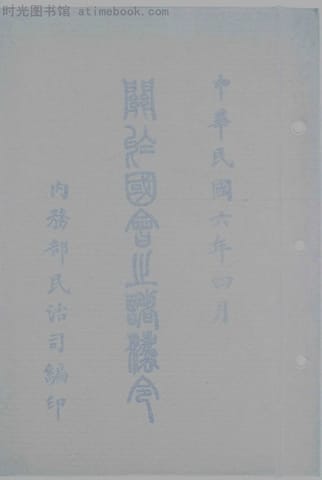 时光图书馆 atimebook.com
中華民國六年四月
關於國會之諸法令
內務部民治司編印